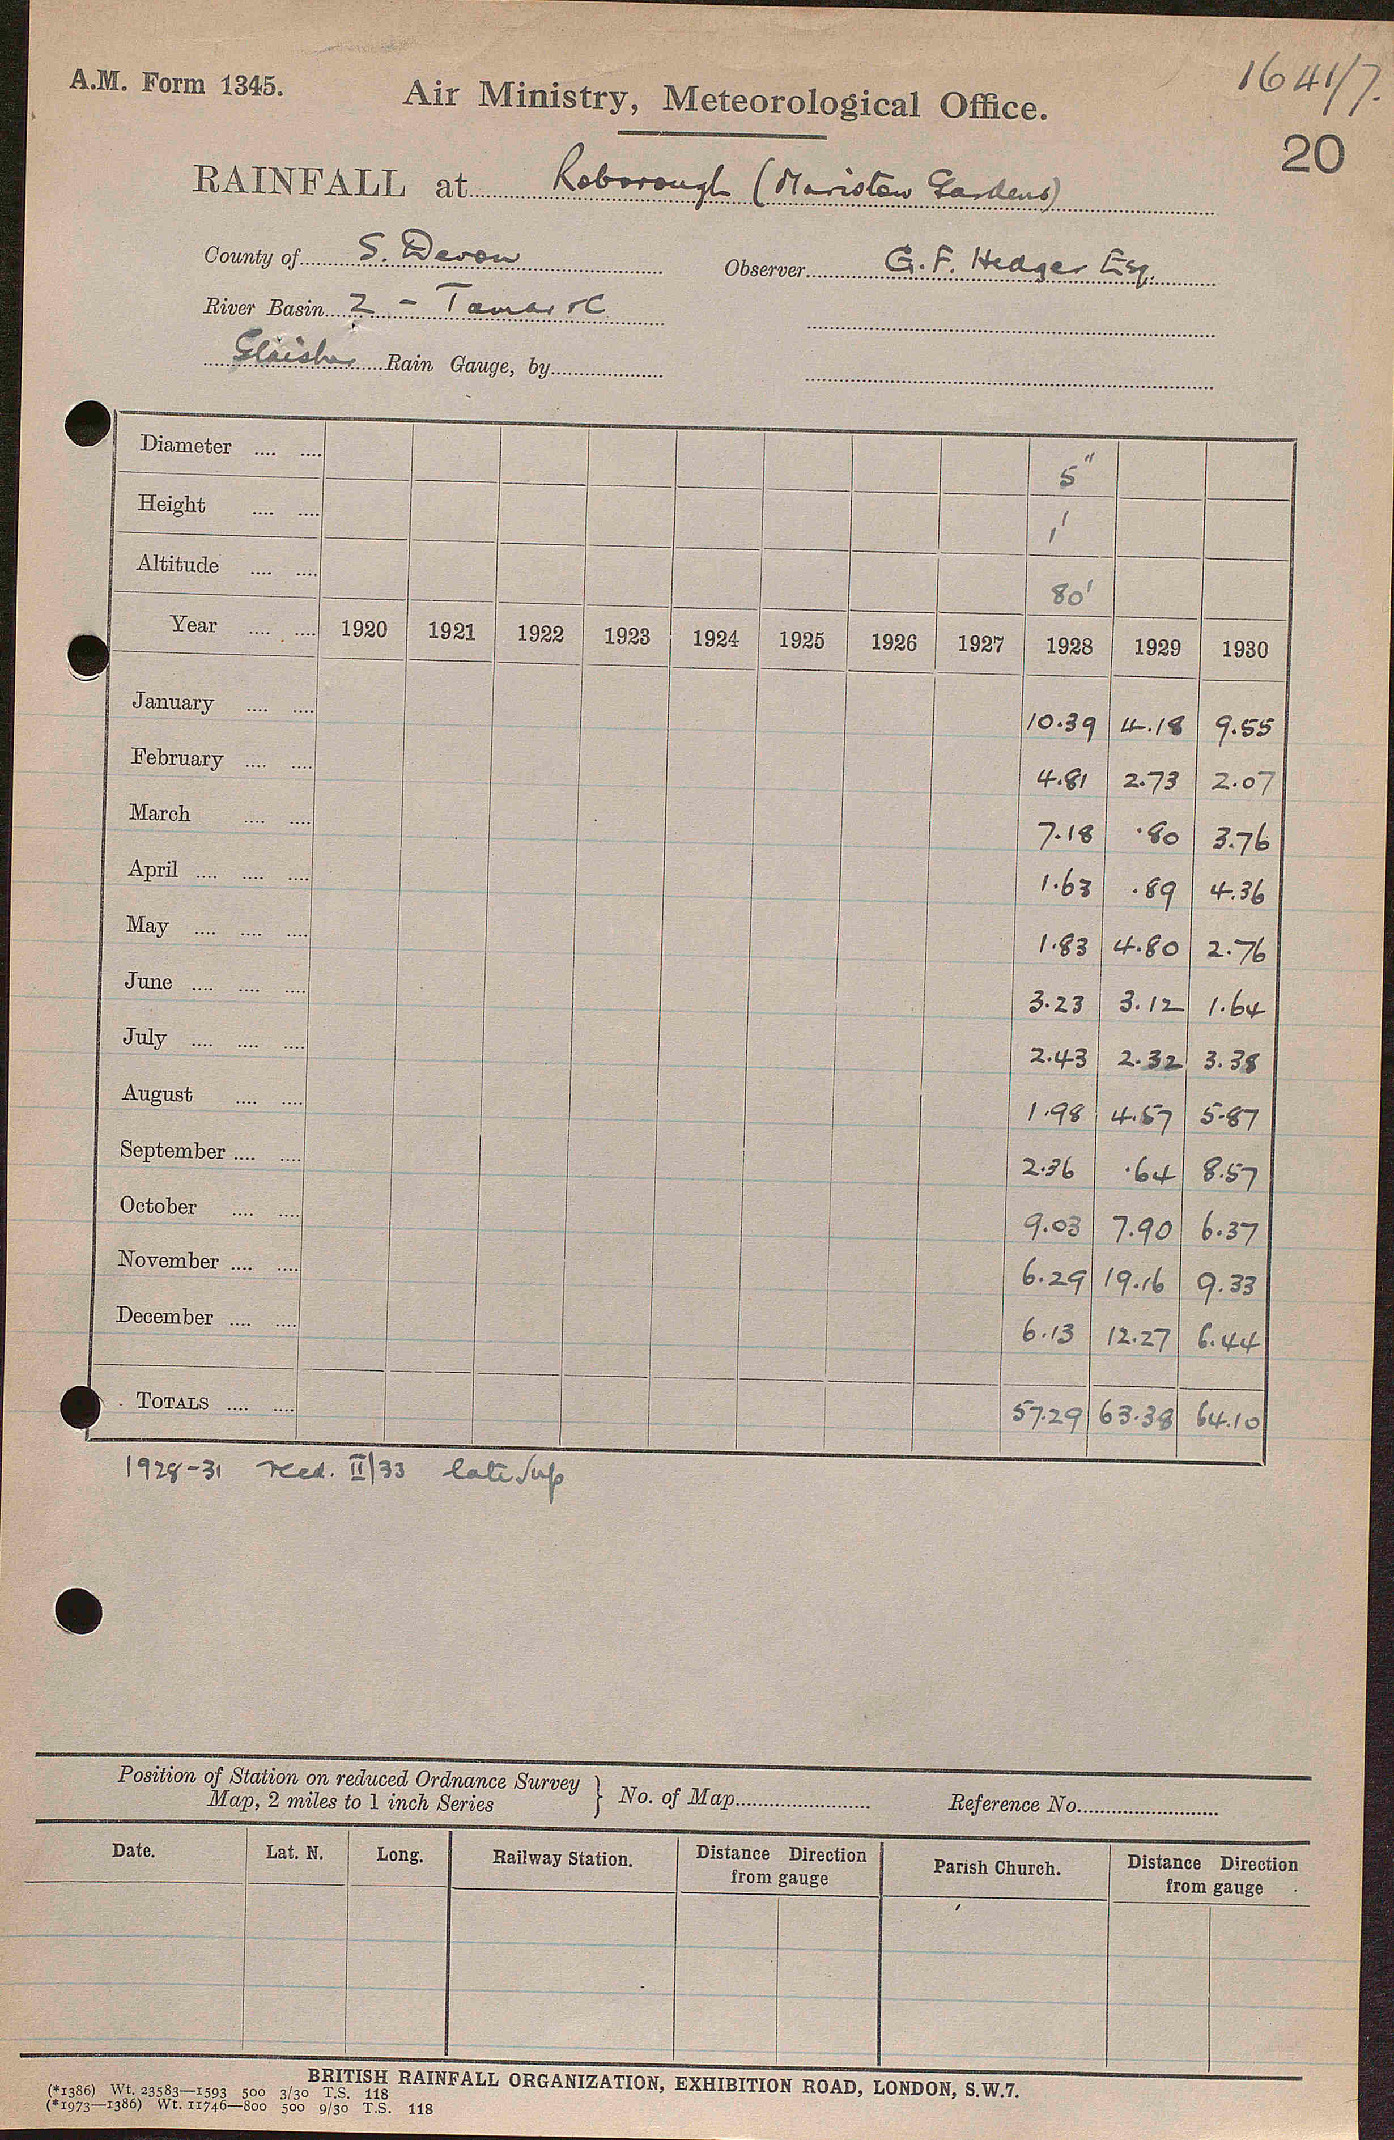 A.M. Form 1345.
Air Ministry, Meteorological Office.
1641/7.
20
RAINFALL at Roborough (Maristow Gardens)
County of S. Devon
Observer G. F. Hedger Esq.
River Basin 2 - Tamar &c
Glaisher Rain Gauge, by
Diameter .... .... 5"
Height .... .... 1'
Altitude .... .... 80'
Year .... .... 1920 1921 1922 1923 1924 1925 1926 1927 1928 1929 1930
January .... .... 10.39 4.18 9.55
February .... .... 4.81 2.73 2.07
March .... .... 7.18 .80 3.76
April .... .... .... 1.63 .89 4.36
May .... .... .... 1.83 4.80 2.76
June .... .... .... 3.23 3.12 1.64
July .... .... .... 2.43 2.32 3.38
August .... .... 1.98 4.57 5.87
September .... .... 2.36 .64 8.57
October .... .... 9.03 7.90 6.37
November .... .... 6.29 19.16 9.33
December .... .... 6.13 12.27 6.44
TOTALS .... .... 57.29 63.38 64.10
1928-31 recd. II/33 late
Position of Station on reduced Ordnance Survey
Map, 2 miles to 1 inch Series } No. of Map Reference No.
Date. Lat. N. Long. Railway Station. Distance Direction from gauge Parish Church. Distance Direction from gauge
BRITISH RAINFALL ORGANIZATION, EXHIBITION ROAD, LONDON, S.W.7.
(*1386) Wt. 23583—1593 500 3/30 T.S. 118
(*1973—1386) Wt. 11746—800 500 9/30 T.S. 118